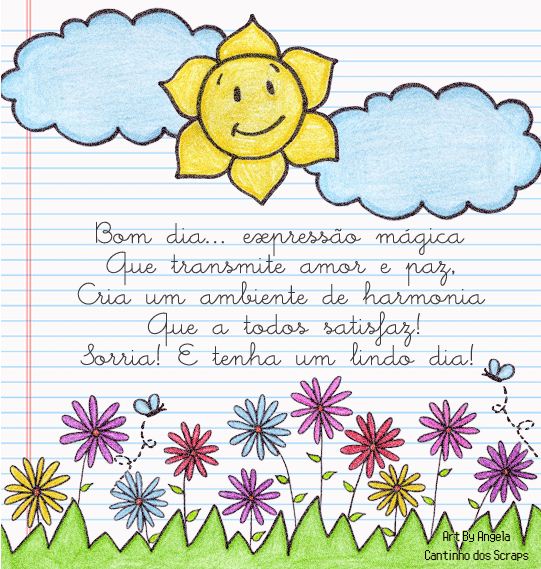 Bom dia... expressão mágica
Que transmite amor e paz,
Cria um ambiente de harmonia
Que a todos satisfaz!
Sorria! E tenha um lindo dia!
Art By Angela
Cantinho dos Scraps